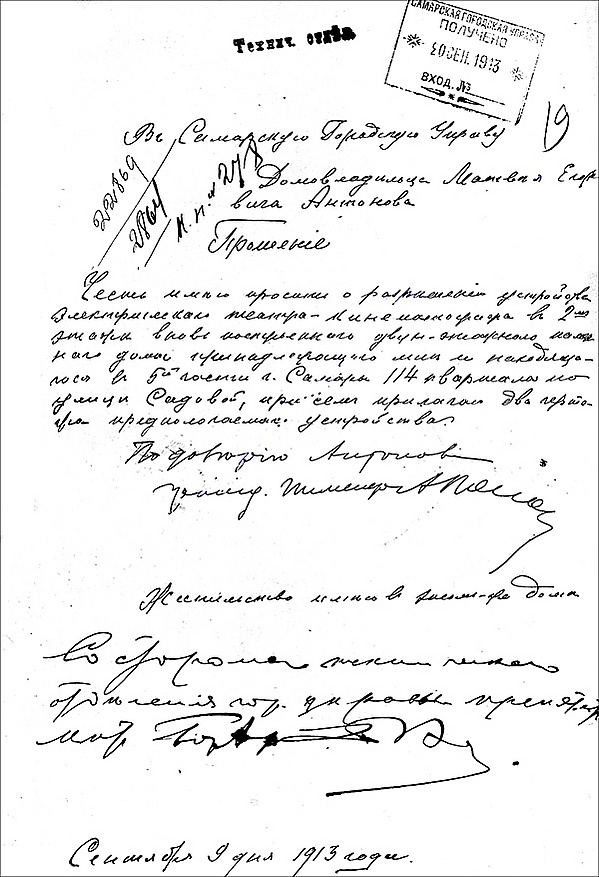 Технич. отдѣл
САМАРСКАЯ ГОРОДСКАЯ УПРАВА
ПОЛУЧЕНО
20 СЕН. 1913
ВХОД. №
19
Въ Самарскую Городскую Управу
22869
2864
278
Домовладѣльца Матвѣя Егоро
вича Антонова
Прошеніе
Честь имѣю просить о разрѣшеніи устройства
электрическаго театра-кинематографа в 2мъ
этажѣ вновь построеннаго двух-этажнаго камен
наго дома принадлежащаго мнѣ и находяща
гося в 5й части г. Самары 114 квартала по
улицѣ Садовой, при сём прилагаю два черте
жа предполагаемаго устройства.
По довѣрію Антонова
инженер
Жительство имѣю в этом-же домѣ
Со стороны техническаго
отдѣленія гор. управы препятст
Сентября 9 дня 1913 года.